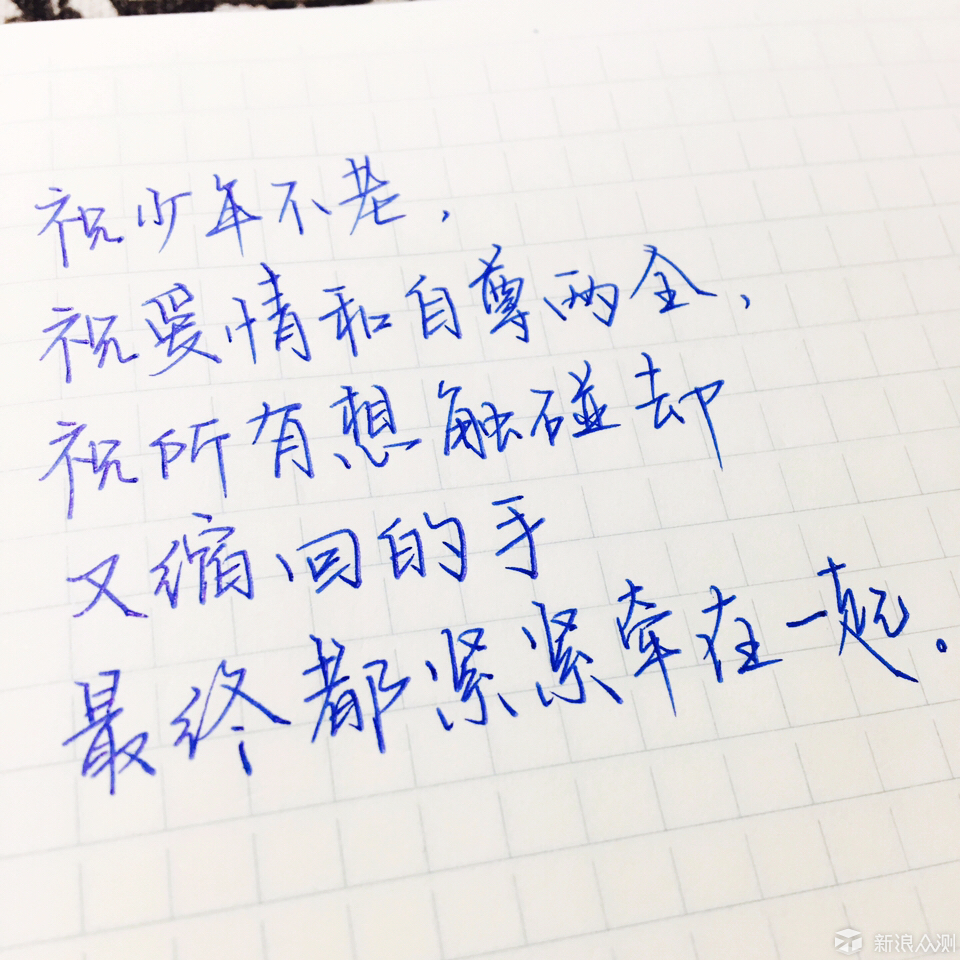 祝少年不老，
祝爱情和自尊两全，
祝所有想触碰却
又缩回的手
最终都紧紧牵在一起。
新浪众测